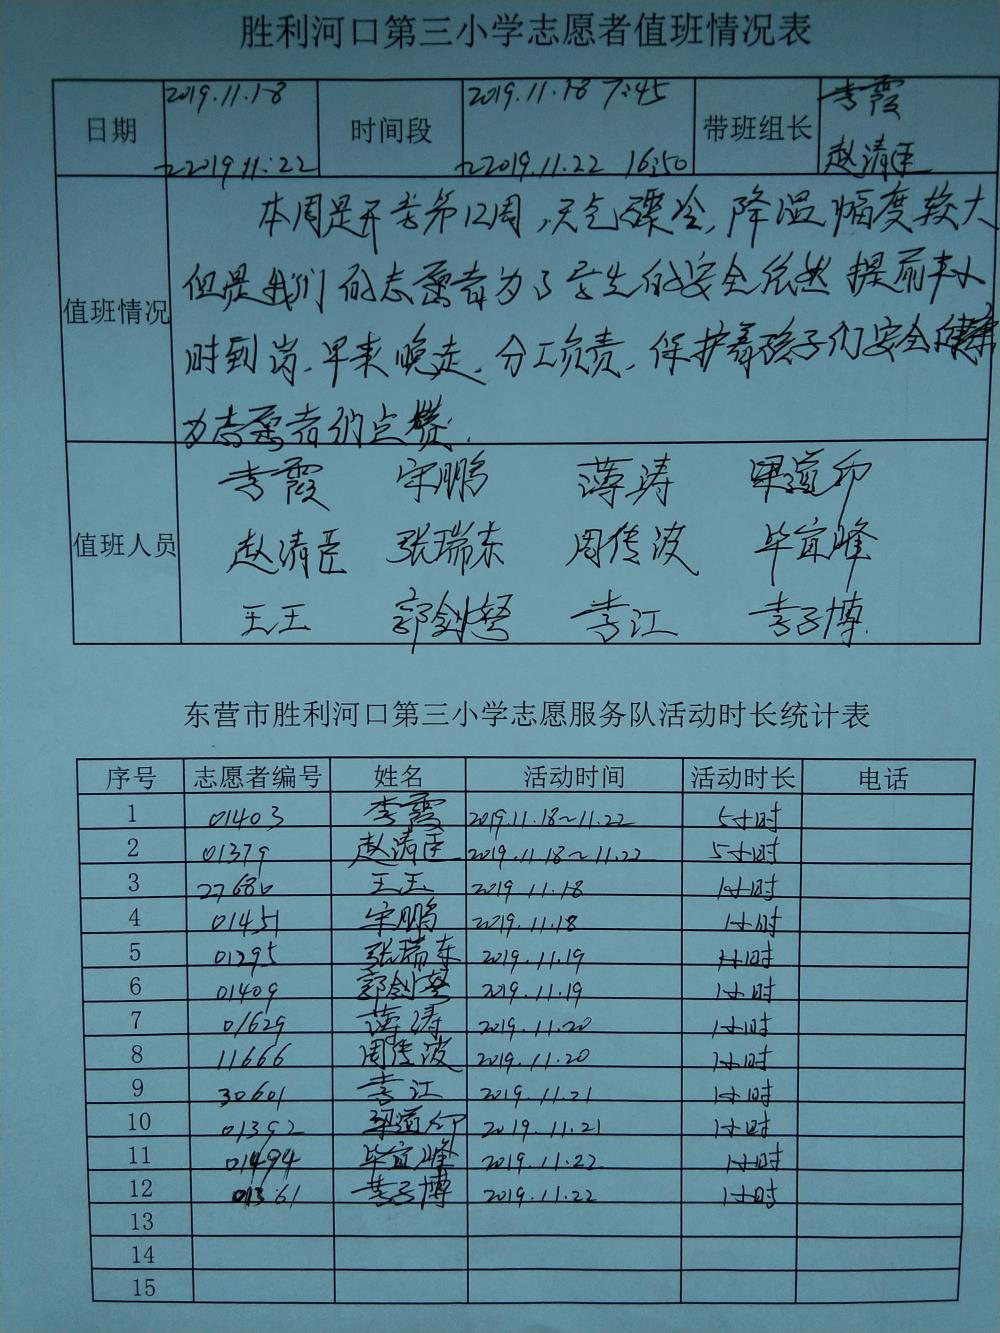 胜利河口第三小学志愿者值班情况表
日期 2019.11.18 ~2019.11.22 时间段 2019.11.18 7:45 ~2019.11.22 16:50 带班组长 李霞 赵清臣
值班情况
本周是开学第12周,天气骤冷,降温幅度较大
但是我们的志愿者为了学生的安全依然提前半小
时到岗.早来晚走.分工负责.保护着孩子们安全健康
为志愿者们点赞.
值班人员
李霞 宋鹏 薄涛 梁道印
赵清臣 张瑞东 周传波 毕宜峰
王玉 郭剑 李江 李子博
东营市胜利河口第三小学志愿服务队活动时长统计表
序号 志愿者编号 姓名 活动时间 活动时长 电话
1 01403 李霞 2019.11.18~11.22 5小时
2 01379 赵清臣 2019.11.18~11.22 5小时
3 27680 王玉 2019.11.18 1小时
4 01451 宋鹏 2019.11.18 1小时
5 01295 张瑞东 2019.11.19 1小时
6 01409 郭剑 2019.11.19 1小时
7 01629 薄涛 2019.11.20 1小时
8 11666 周传波 2019.11.20 1小时
9 30601 李江 2019.11.21 1小时
10 01392 梁道印 2019.11.21 1小时
11 01494 毕宜峰 2019.11.22 1小时
12 01361 李子博 2019.11.22 1小时
13
14
15